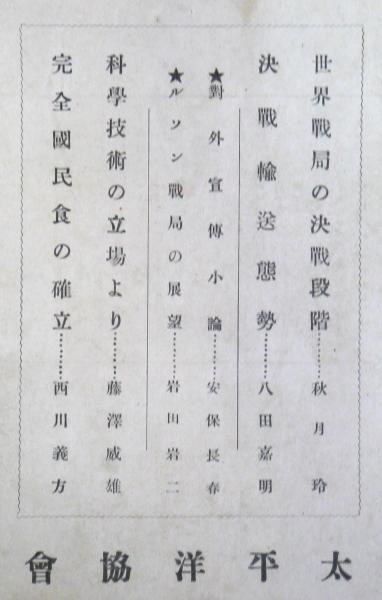 世界戰局の決戰段階………秋月玲
決戰輸送態勢………八田嘉明
★對外宣傳小論………安保長春
★ルソン戰局の展望………岩田岩二
科學技術の立場より………藤澤威雄
完全國民食の確立………西川義方
太平洋協會